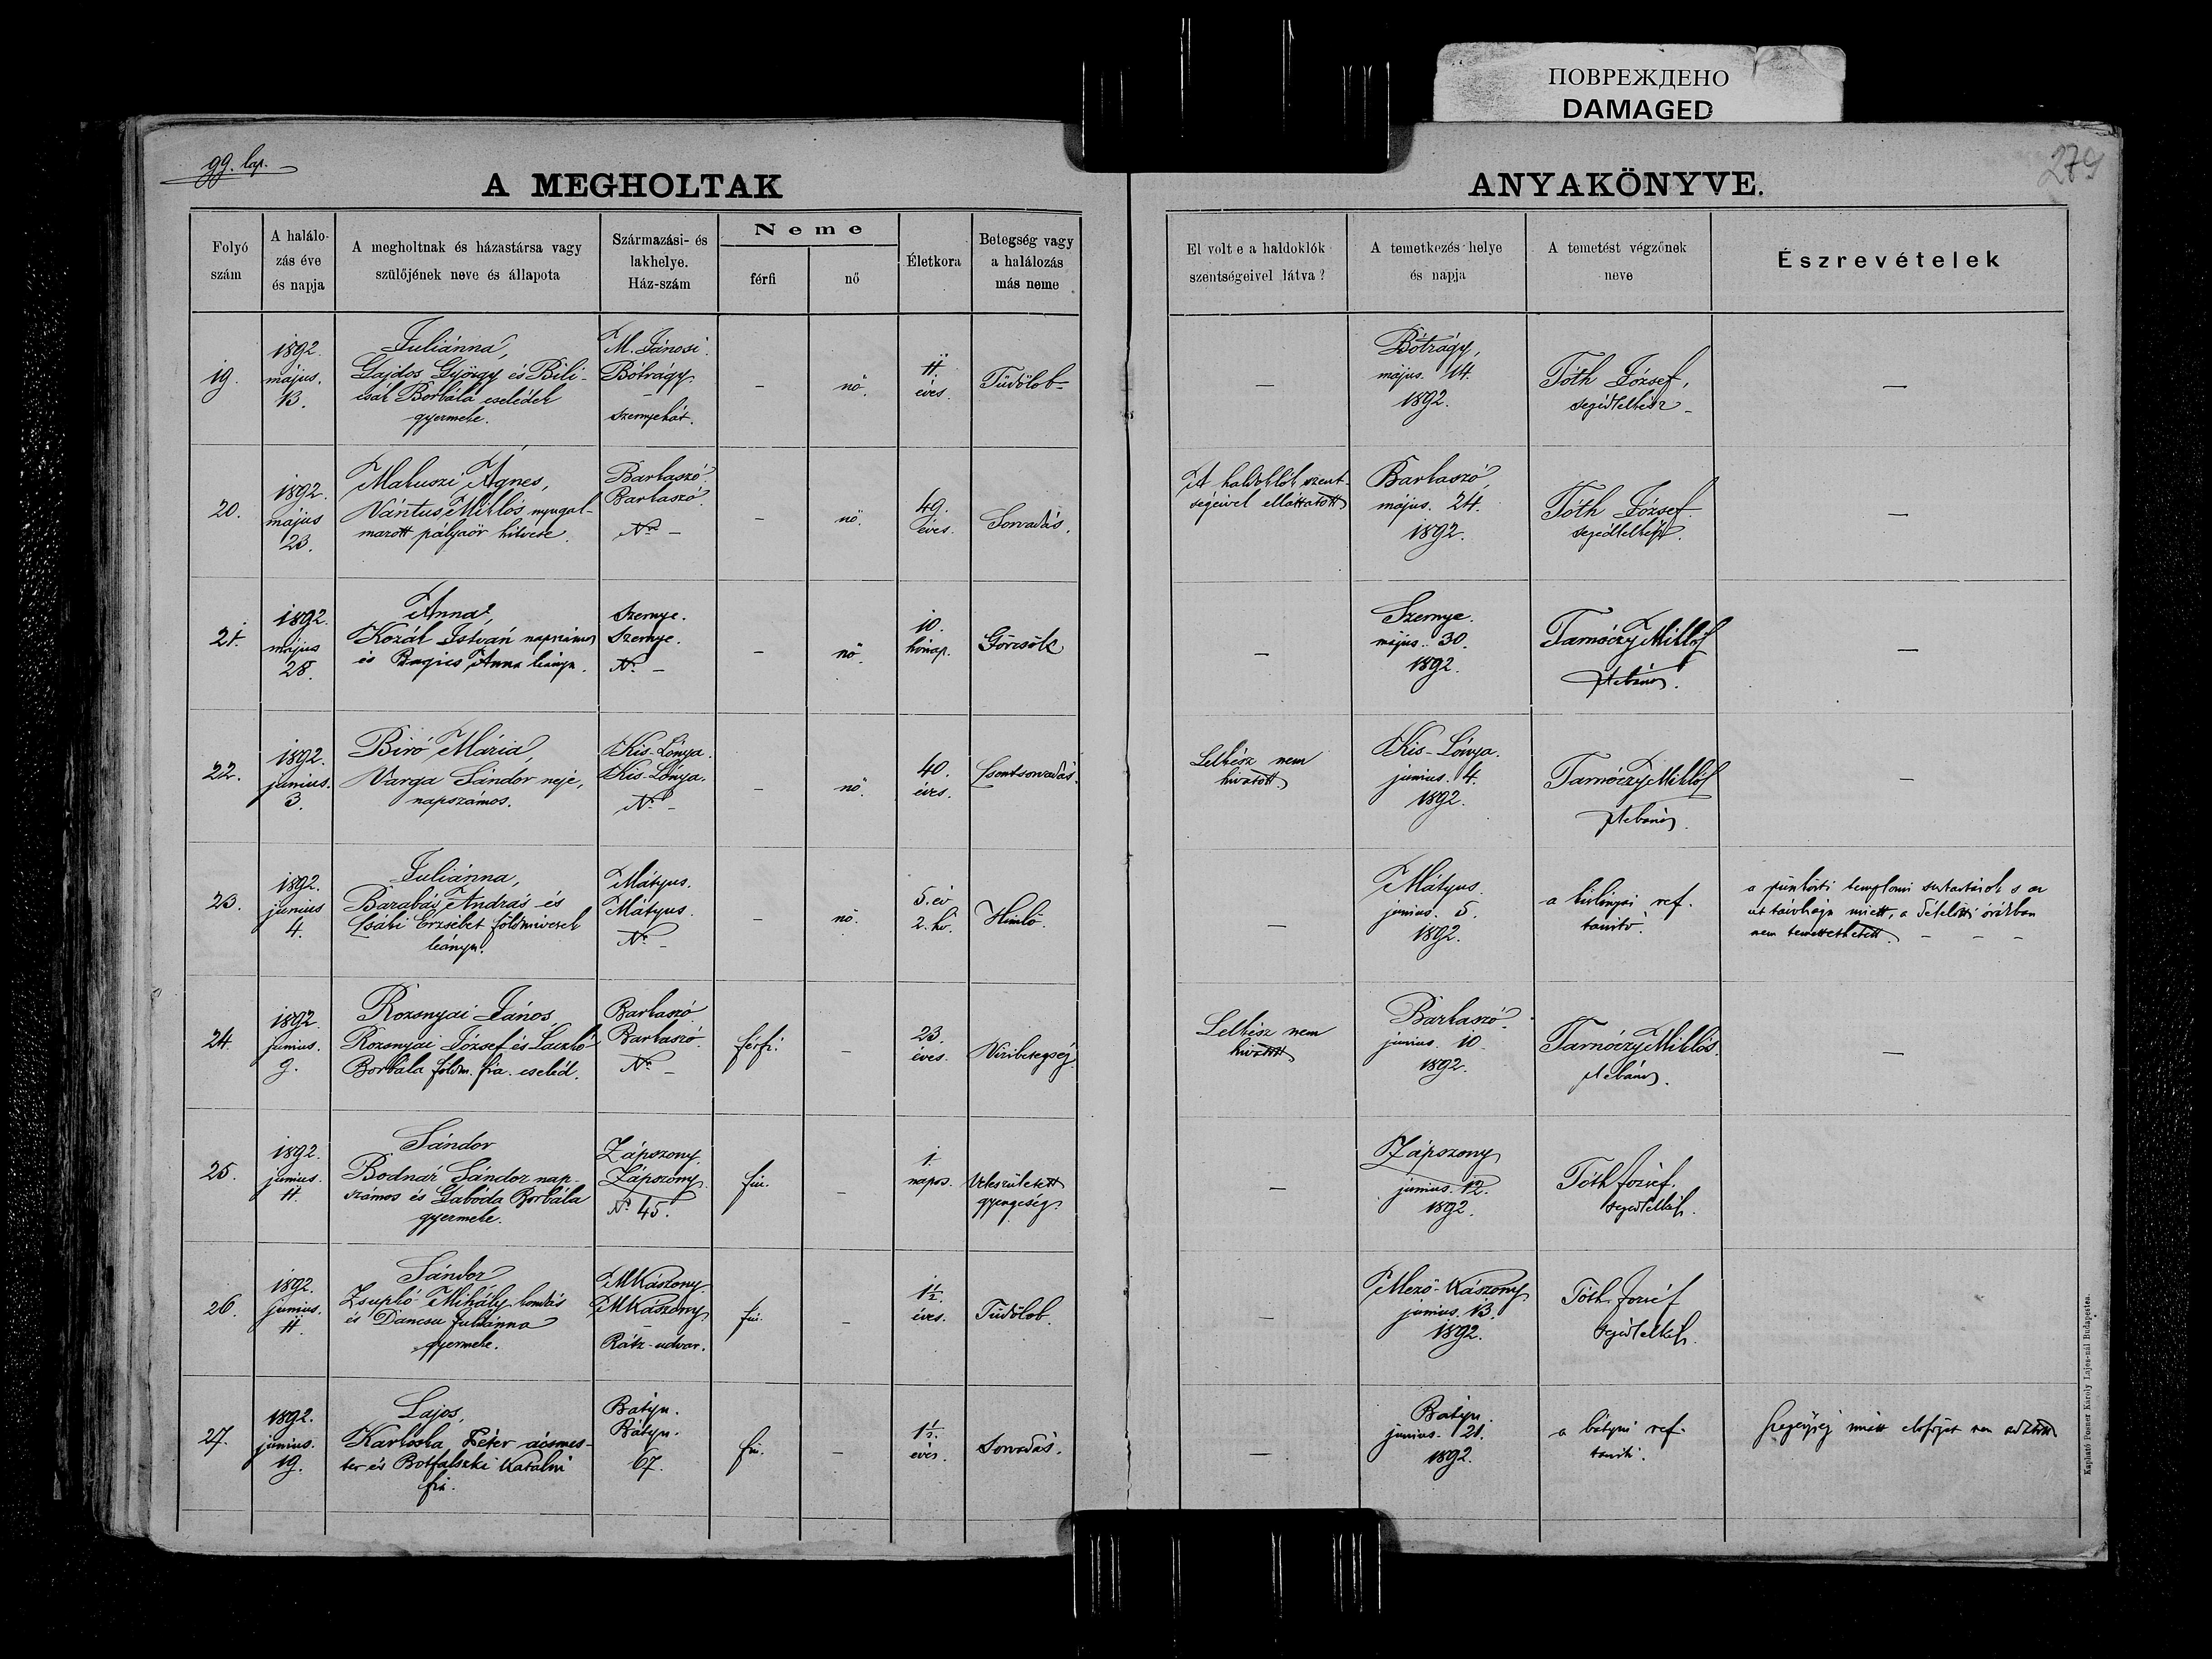 ПОВРЕЖДЕНО
DAMAGED
99. lap.
279
A MEGHOLTAK
ANYAKÖNYVE.
Folyó szám
A halálo-
zás éve
és napja
A megholtnak és házastársa vagy
szülőjének neve és állapota
Származási- és
lakhelye.
Ház-szám
Neme
férfi
nő
Életkora
Betegség vagy
a halálozás
más neme
El volt e a haldoklók
szentségeivel látva?
A temetkezés helye
és napja
A temetést végzőnek
neve
Észrevételek
19.
1892.
május.
13.
Juliánna,
Gajdos György és Bili-
csák Borbála cselédek
gyermeke.
M. Jánosi.
Bótrágy.
–
Szernyehát.
–
nő.
11.
éves.
Tüdőlob–
–
Bótrágy,
május. 14.
1892.
Tóth József,
segédlelkész–
–
20.
1892.
május
23.
Matuszi Ágnes,
Vántus Miklós nyugal-
mazott pályaőr hitvese.
Barkaszó.
Barkaszó.
No –
–
nő.
49.
éves.
Sorvadás.
A haldoklók szent-
ségeivel elláttatott
Barkaszó,
május. 24.
1892.
Tóth József
segédlelkész.
–
21.
1892.
május
28.
Anna,
Kozák István napszámos
és Bagics Anna leánya.
Szernye.
Szernye.
No –
–
nő.
10.
hónap.
Görcsök
–
Szernye.
május. 30.
1892.
Tarnóczy Miklós
plébános.
–
22.
1892.
junius.
3.
Biró Mária,
Varga Sándor neje,
napszámos.
Kis-Lónya.
Kis-Lónya.
No –
–
nő.
40.
éves.
Csontsorvadás.
Lelkész nem
hivatott.
Kis-Lónya.
junius. 4.
1892.
Tarnóczy Miklós
plébános.
–
23.
1892.
junius
4.
Juliánna,
Barabás András és
Csáki Erzsébet földmivesek
leánya.
Mátyus.
Mátyus.
No –
–
nő.
5. év
2. hó.
Himlő.
–
Mátyus.
junius. 5.
1892.
a ref.
tanitó.
a pünkösti templomi szertartások s az
út távolsága miatt, a délelőtti órákban
nem temettethetett. – – –
24.
1892.
junius.
9.
Rozsnyai János,
Rozsnyai József és Laczkó
Borbála földm. fia. cseléd.
Barkaszó
Barkaszó.
No –
férfi.
–
23.
éves.
Vizibetegség.
Lelkész nem
hivatott
Barkaszó.
junius. 10.
1892.
Tarnóczy Miklós.
plébános.
–
25.
1892.
junius.
11.
Sándor
Bodnár Sándor nap-
számos és Gaboda Borbála
gyermeke.
Zápszony.
Zápszony.
No 45.
fiú.
–
1.
napos.
Veleszületett
gyengeség.
–
Zápszony
junius. 12.
1892.
Tóth József.
segédlelkész.
26.
1892.
junius.
11.
Sándor
Zsupkó Mihály kondás
és Dancsu Juliánna
gyermeke.
MKászony.
MKászony
–
Rátz-udvar.
fiú.
–
1½.
éves.
Tüdőlob.
–
Mező-Kászony
junius. 13.
1892.
Tóth József
segédlelkész.
27.
1892.
junius.
19.
Lajos,
Karloska Péter ácsmes-
ter és Botfalszki Katalin
fia.
Bátyu.
Bátyu.
67.
fiú.
–
1½.
éves.
Sorvadás.
–
Bátyu.
junius. 21.
1892.
a bátyui ref.
tanitó.
Szegénység miatt előfogat nem adatott
Kapható Posner Károly Lajos-nál Budapesten.